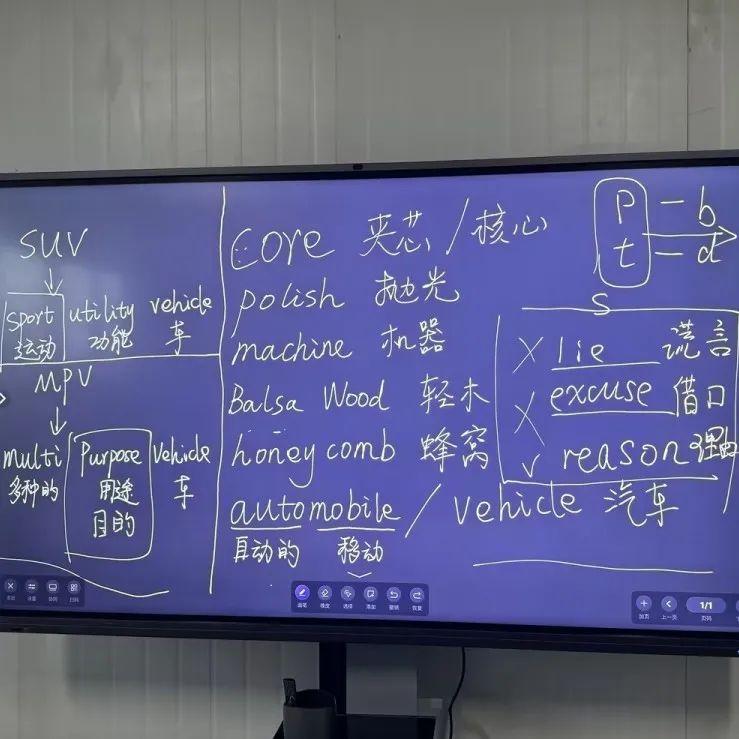 SUV
sport utility vehicle
运动 功能 车
MPV
multi Purpose vehicle
多种的 用途 车
目的
Core 夹芯/核心
polish 抛光
machine 机器
Balsa Wood 轻木
honeycomb 蜂窝
automobile / vehicle 汽车
自动的 移动
p - b
t - d
s
× lie 谎言
× excuse 借口
√ reason 理由
1/1